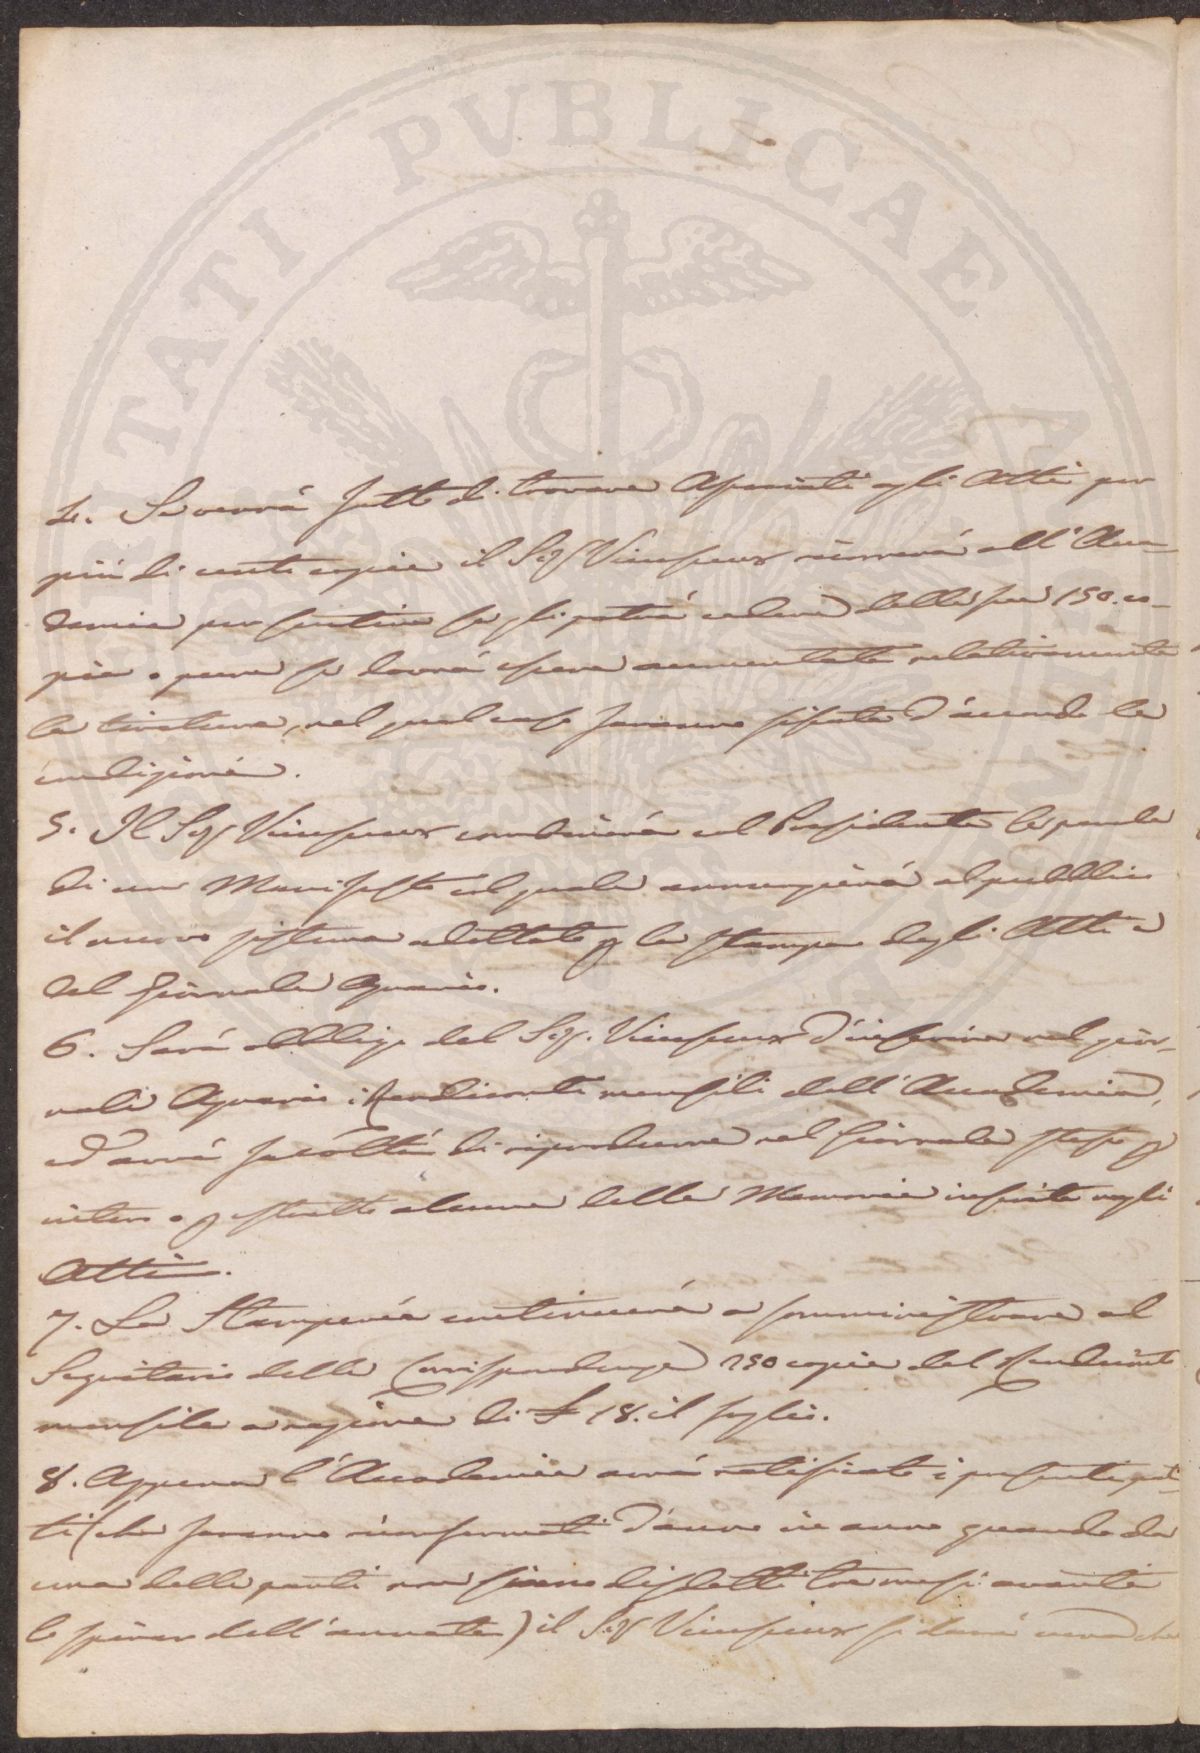 PVBLICAE
4. Se verrà fatto di trovare Associati agli Atti per
più di cento copie il Sigr Vieusseux scriverà all'Acca-
demia per sentire se gli potrà cedere delle sue 150. co-
pie o pure se dovrà essere aumentata relativamente
la tiratura, nel qual caso saranno fissate d'accordo le
condizioni.
5. Il Sigr Vieusseux combinerà col Presidente la parole
di un Manifesto col quale annunzierà al pubblico
il nuovo sistema adottato p la stampa degli Atti e
del Giornale Agrario.
6. Sarà obbligo del Sigr. Vieusseux d'inserire nel gior-
nale Agrario i Rendiconti mensili dell'Accademia,
ed avrà facoltà di riprodurre nel Giornale stesso p
intero o p estratto alcune delle Memorie inserite negli
Atti.
7. La Stamperia continuerà a somministrare al
Segretario delle Corrispondenze 250 copie del Rendiconto
mensile a ragione di £ 18. il foglio.
8. Appena l'Accademia avrà ratificato i presenti pat-
ti (che saranno riconfermati d'anno in anno quando da
una delle parti non siano disdetti tre mesi avanti
lo spirar dell'annata) il Sigr Vieusseux si darà cura che